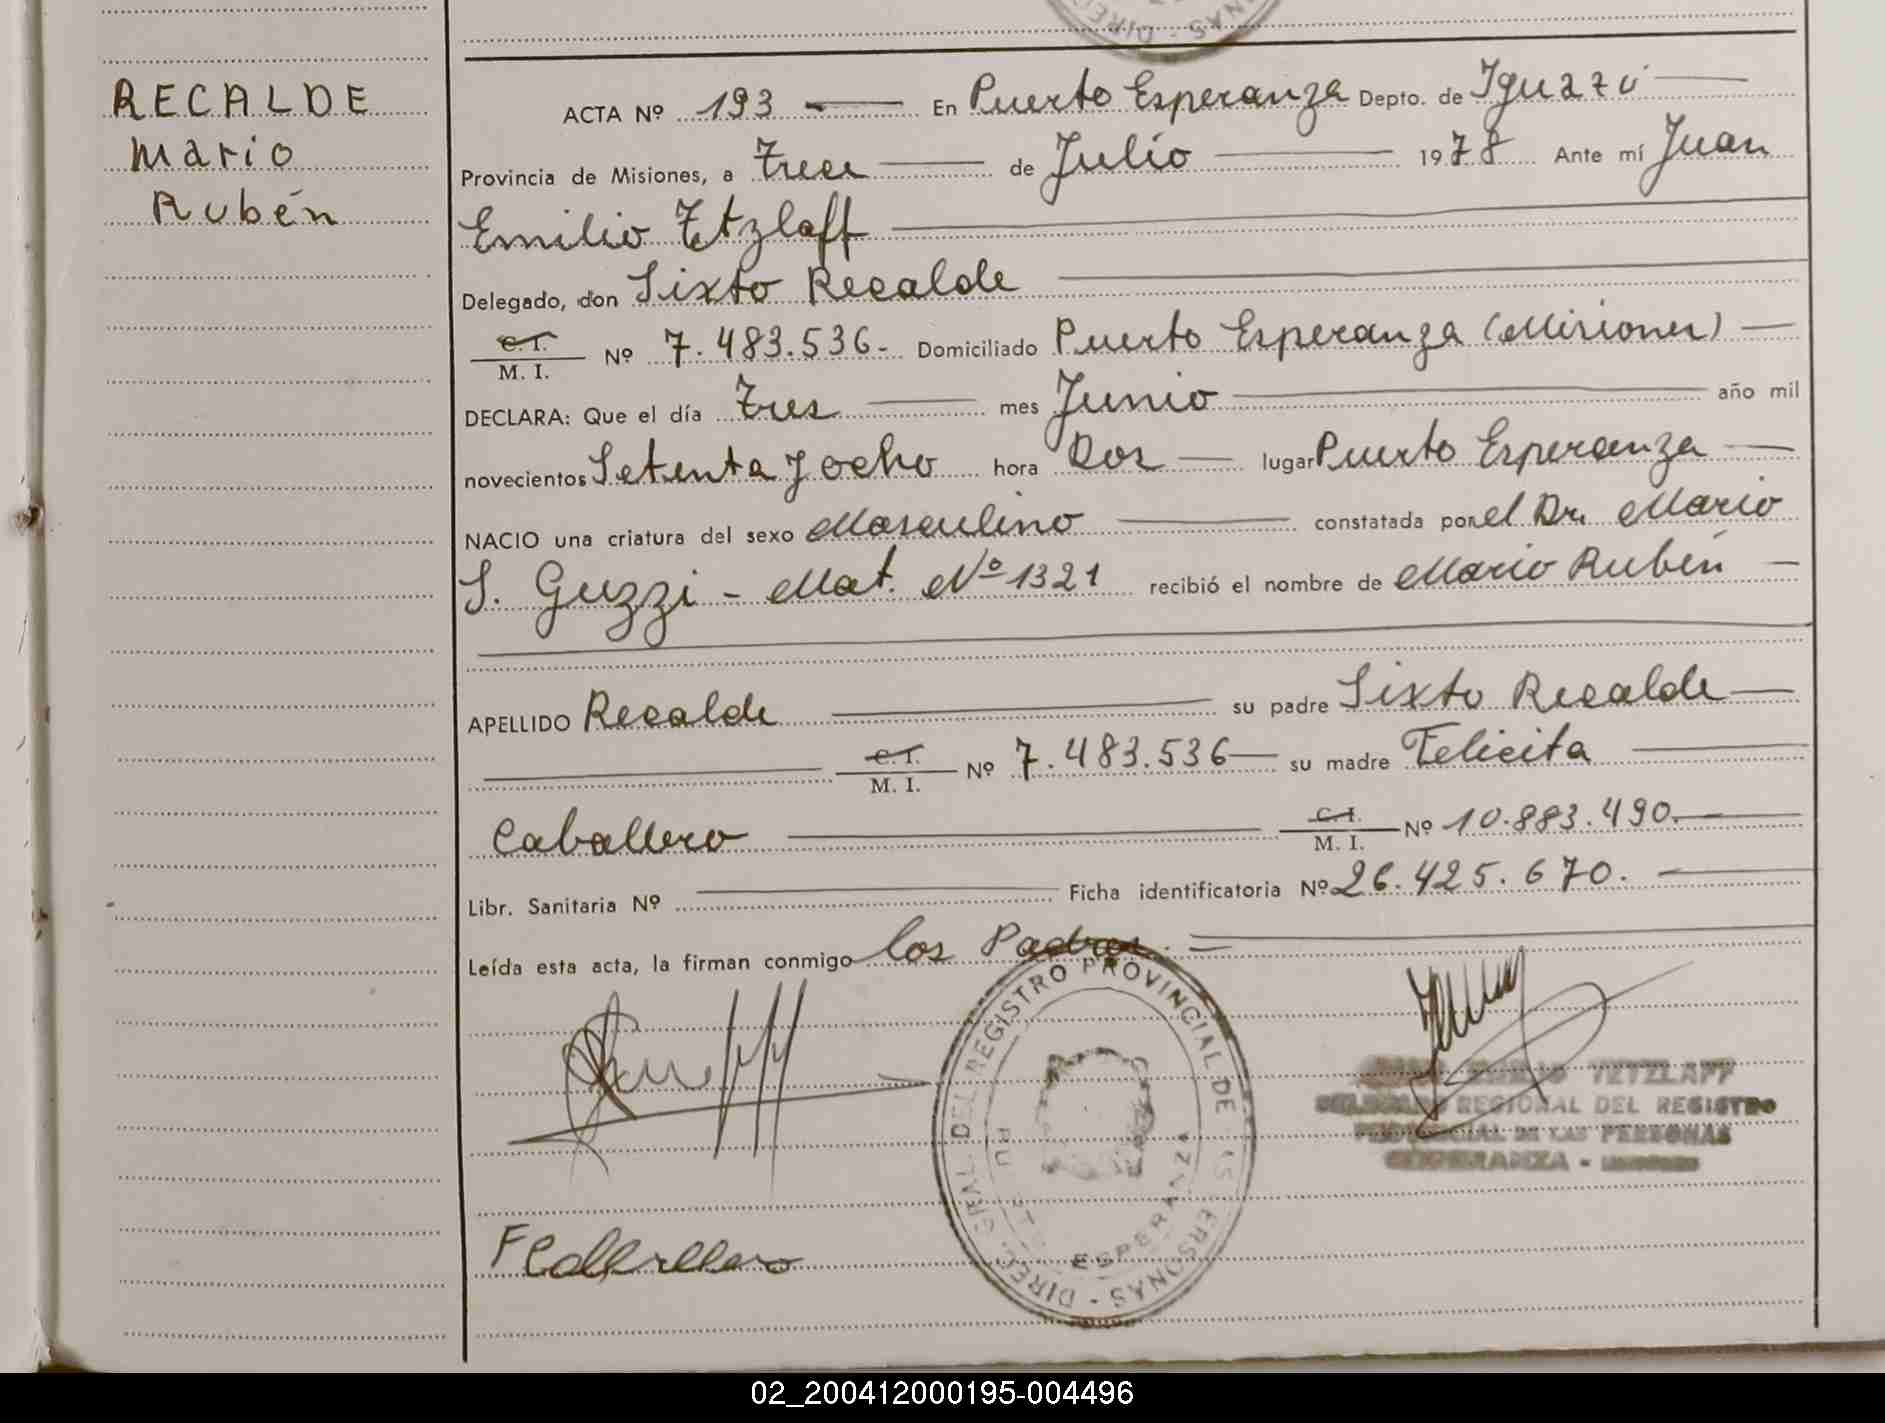 RECALDE
Mario
Rubén
DIREC - SANOS
ACTA Nº 193 En Puerto Esperanza Depto. de Iguazú
Provincia de Misiones, a Trece de Julio 1978 Ante mí Juan
Emilio Tetzlaff
Delegado, don Sixto Recalde
C. I.
M. I. Nº 7.483.536- Domiciliado Puerto Esperanza (Misiones)
DECLARA: Que el día Tres mes Junio año mil
novecientos Setenta y ocho hora Dos lugar Puerto Esperanza
NACIO una criatura del sexo Masculino constatada por el Dr. Mario
S. Guzzi - Mat. Nº 1321 recibió el nombre de Mario Rubén
APELLIDO Recalde su padre Sixto Recalde
C. I.
M. I. Nº 7.483.536 su madre Felicita
Caballero C. I.
M. I. Nº 10.883.490.
Libr. Sanitaria Nº Ficha identificatoria Nº 26.425.670.
Leída esta acta, la firman conmigo los Padres.
DIREC. GRAL. DEL REGISTRO PROVINCIAL DE LAS PERSONAS -
PUERTO ESPERANZA
EMILIO TETZLAFF
DELEGADO REGIONAL DEL REGISTRO
PROVINCIAL DE LAS PERSONAS
ESPERANZA -
FCaballero
02_200412000195-004496